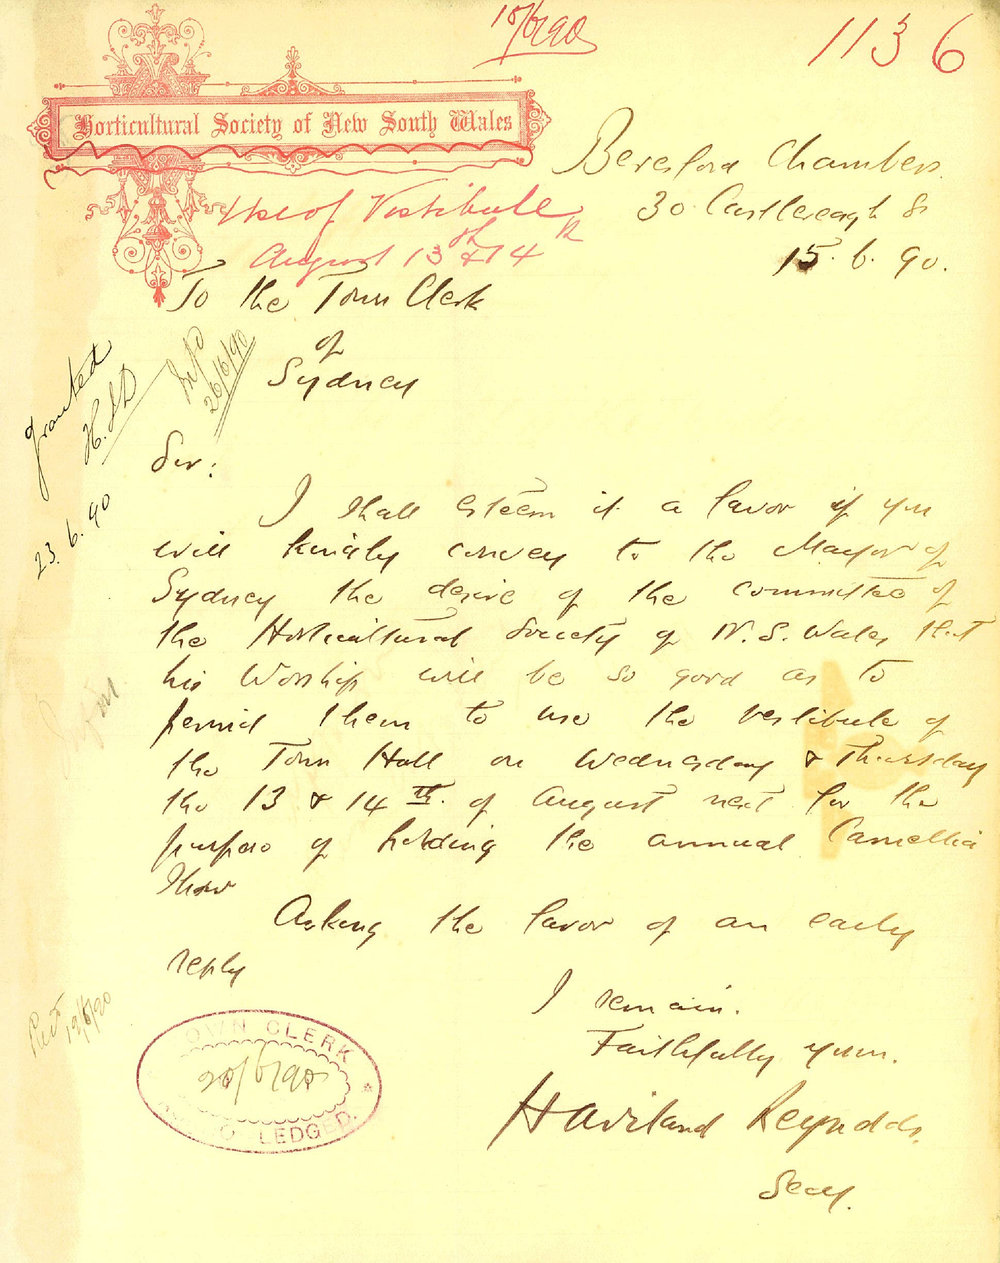 18/6/90
1136
Horticultural Society of New South Wales
Beresford Chambers.
30 Castlereagh St
15. 6. 90.
Use of Vestibule
August 13th & 14th
To the Town Clerk
of
Sydney
granted
23. 6. 90
26/6/90
Sir:
I shall esteem it a favor if you
will kindly convey to the Mayor of
Sydney the desire of the committee of
the Horticultural Society of N. S. Wales that
his Worship will be so good as to
permit them to use the vestibule of
the Town Hall on Wednesday & Thursday
the 13 & 14th. of August next for the
purpose of holding the annual Camellia
Show
Asking the favor of an early
reply
I remain.
Faithfully yours.
Haviland Reynolds.
Secy.
19/6/90
TOWN CLERK
20/6/90
ACKNOWLEDGED.